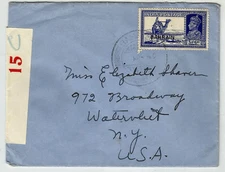 INDIA POSTAGE
BAHRAIN
C
15
Miss Elizabeth Shaver
972 Broadway
Watervliet
N.Y.
U.S.A.